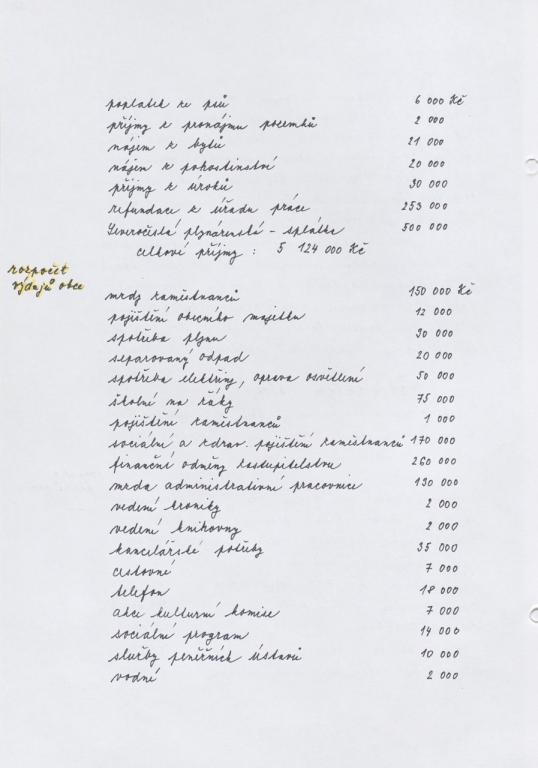 poplatek ze psů 6 000 Kč
příjmy z pronájmu pozemků 2 000
nájem z bytů 21 000
nájem z pohostinství 20 000
příjmy z úroků 30 000
refundace z úřadu práce 253 000
Severočeská plynárenská - splátka 500 000
celkové příjmy : 5 124 000 Kč
rozpočet
výdajů obce
mzdy zaměstnanců 150 000 Kč
pojištění obecního majetku 12 000
spotřeba plynu 30 000
separovaný odpad 20 000
spotřeba elektřiny, oprava osvětlení 50 000
školné na žáky 75 000
pojištění zaměstnanců 1 000
sociální a zdrav. pojištění zaměstnanců 170 000
finanční odměny zastupitelstvu 260 000
mzda administrativní pracovnice 130 000
vedení kroniky 2 000
vedení knihovny 2 000
kancelářské potřeby 35 000
cestovné 7 000
telefon 18 000
akce kulturní komise 7 000
sociální program 14 000
služby peněžních ústavů 10 000
vodné 2 000